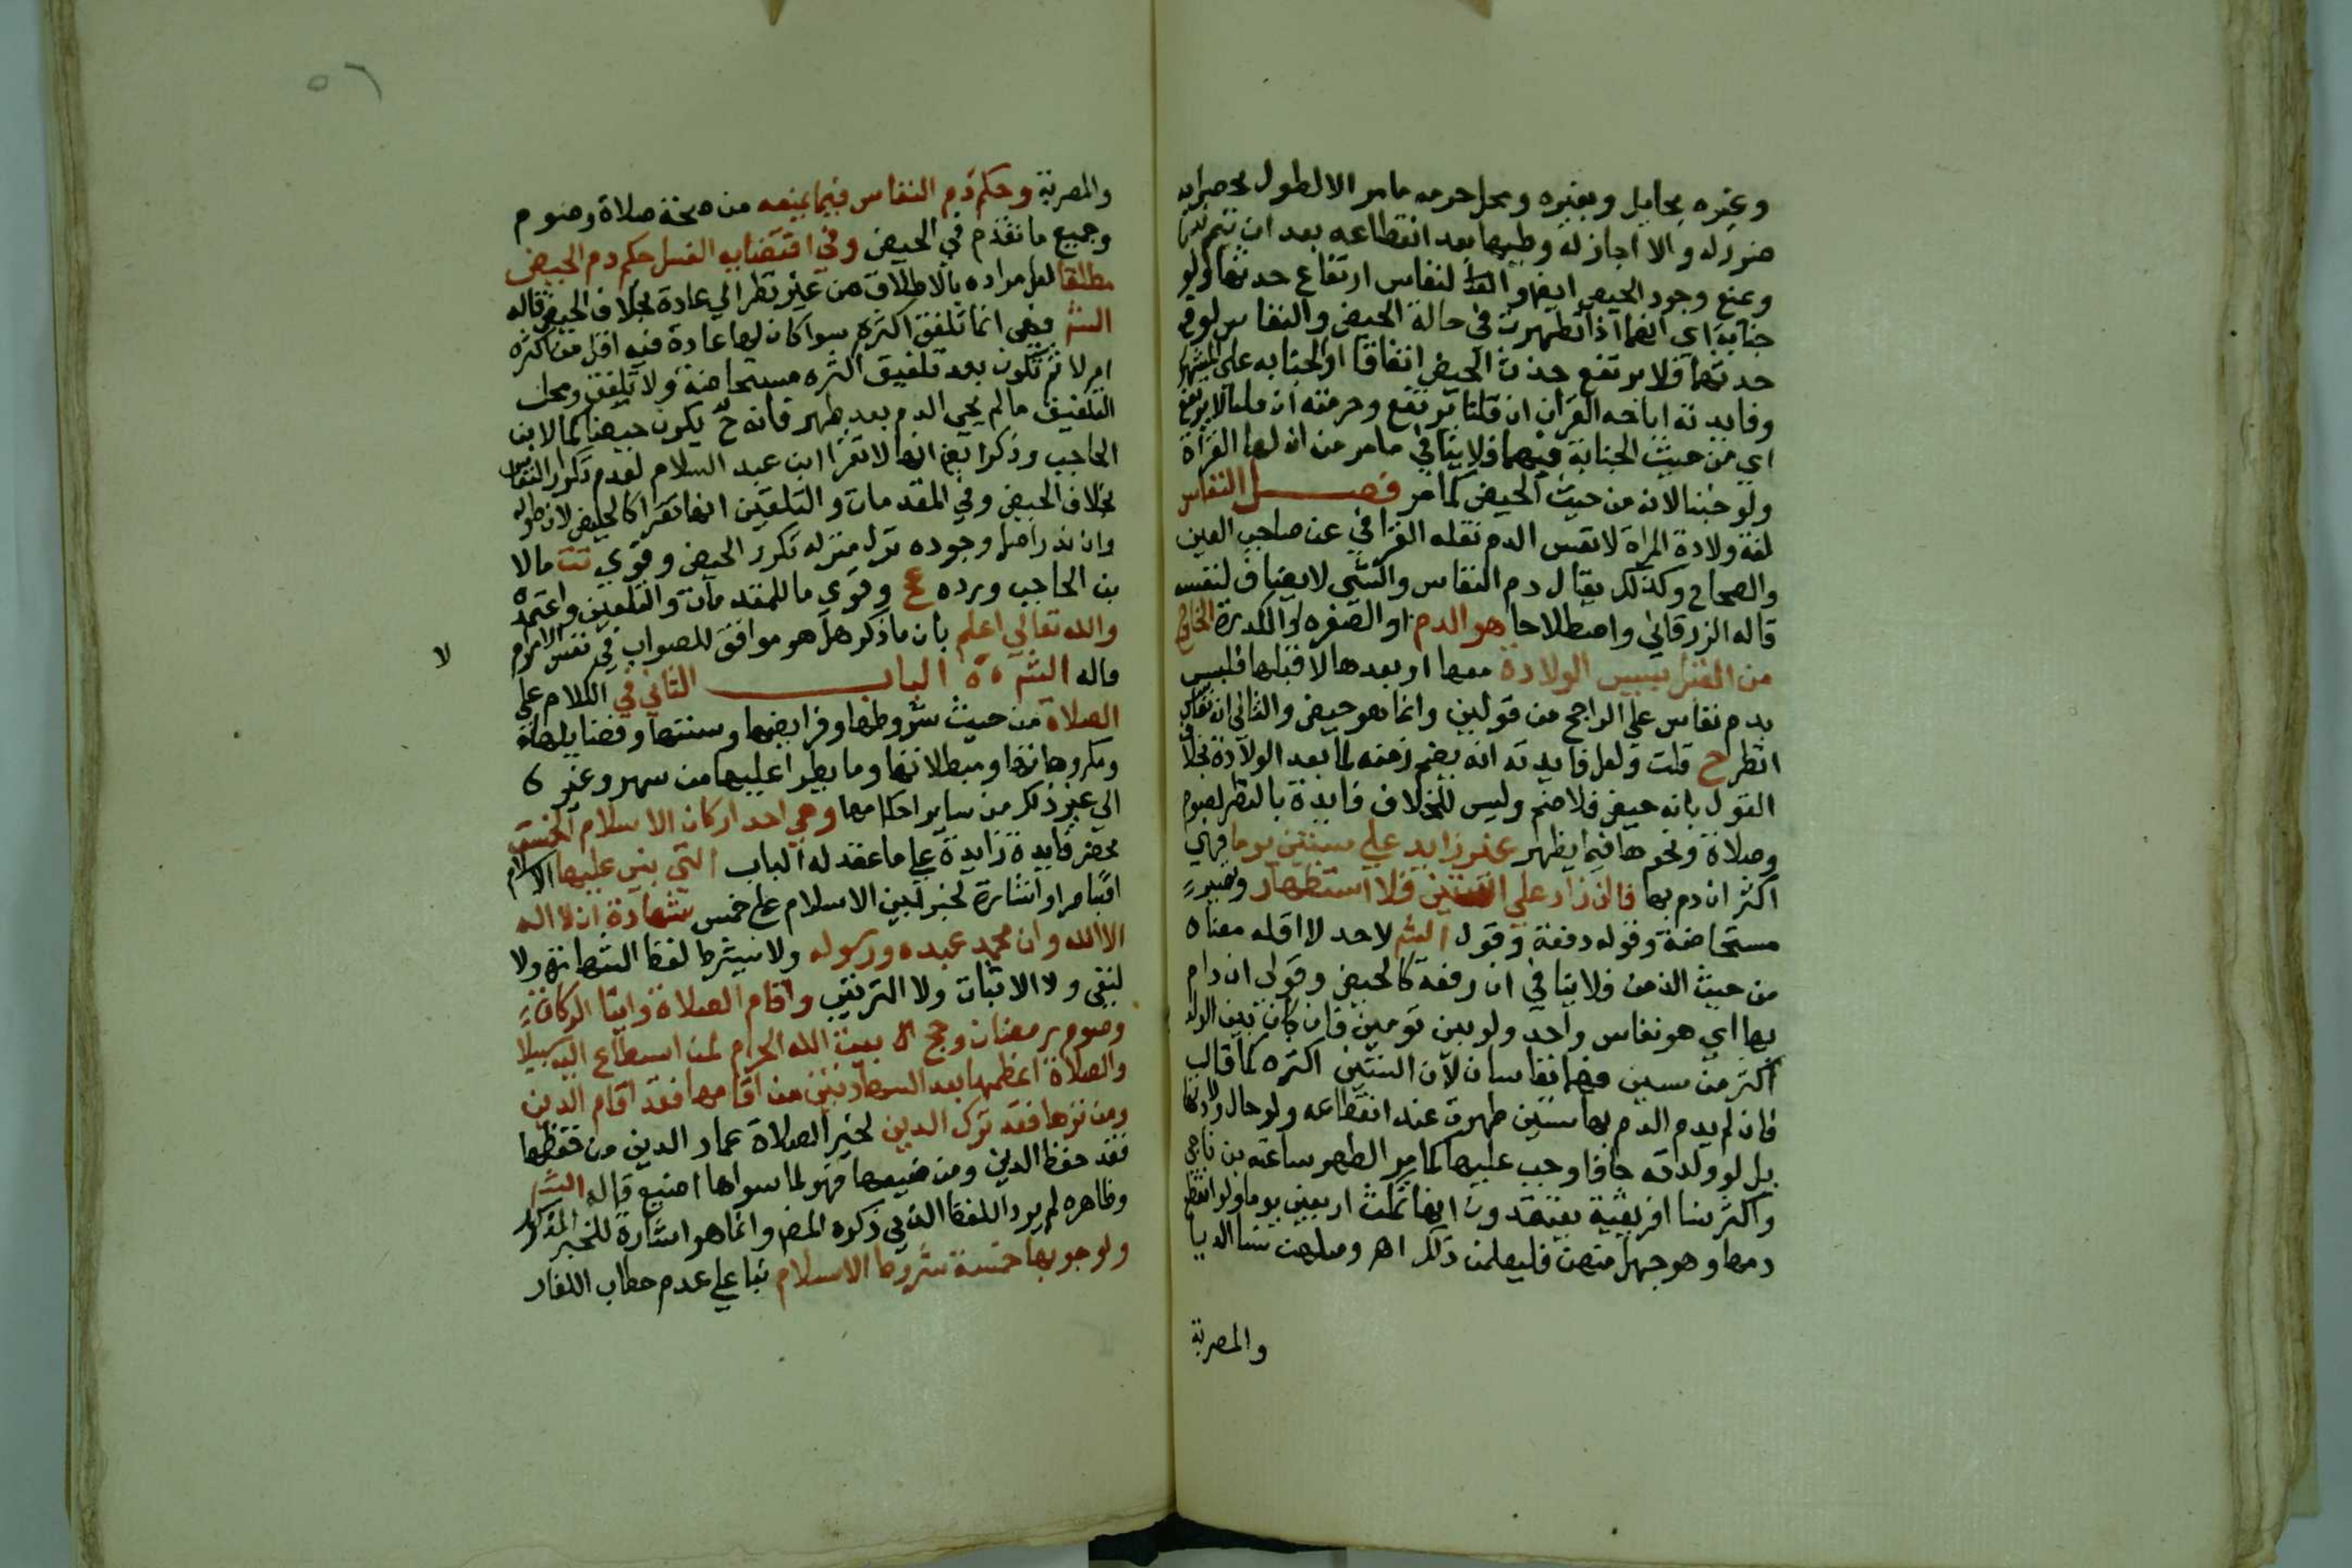 وغيره بحايل وبغيره ومحل حرمه مامر الا لطول يحصل به
ضرر له والا اجاز له وطيها بعد انقطاعه بعد ان تتيمم
ويمنع وجود الحيض ايضا والنفاس ارتفاع حدثها ولو
جنابة اي انها اذا تطهرت في حالة الحيض والنفاس لرفع
حدثها فلا يرتفع حدث الحيض اتفاقا او الجنابه على المشهور
وفايدته اباحه القران ان قلنا يرتفع وحرمته ان قلنا لا يرتفع
اي من حيث الجنابة فيهما فلا ينافي مامر من ان لها القرأة
ولو جنبا لانه من حيث الحيض كما مر فصل النفاس
لغة ولادة المراة لا نفس الدم نقله القرافي عن صاحب العين
والصحاح وكذلك يقال دم النفاس والشي لا يضاف لنفسه
قاله الزرقاني واصطلاحا هو الدم او الصفره او الكدرة الخارج
من القبل بسبب الولادة معها او بعدها لا قبلها فليس
بدم نفاس على الراجح من قولين وانما هو حيض والثاني انه نفاس
انظر ح قلت ولعل فايدته انه يضم زمنه لما بعد الولادة بخلاف
القول بانه حيض فلا ضم وليس للخلاف فايدة بالنظر لصوم
وصلاة ونحوها فيما يظهر غير زايد على ستين يوما فهي
اكثر ان دم بها فان زاد على الستين فلا استظهار وتصير
مستحاضة وقوله دفعة وقول الشم لاحد لاقله معناه
من حيث الزمن فلا ينافي ان دفعه كالحيض وقولي ان دام
بها اي هو نفاس واحد ولو بين تومين فان كان بين الولد
اكثر من ستين فهما نفاسان لان الستين اكثره كما قال
فان لم يدم الدم بها ستين طهرت عند انقطاعه ولو حال ولادتها
بل لو ولدته جافا وجب عليها كما مر الطهر ساعته بن ناجي
واكثر نسا افريقية يعتقدون انها تمكث اربعين يوما ولو انقطع
دمها وهو جهل منهن فليعلمن ذلك اهـ ومثلهن نسا الدنيا
والمصرية
٥٦
والمصرية وحكم دم النفاس فيما يمنعه من صحة صلاة وصوم
وجميع ما تقدم في الحيض وفي اقتضايه الغسل حكم دم الحيض
مطلقا لعل مراده بالاطلاق من غير نظر الي عادة بخلاف الحيض قاله
الشم فهي انما تلفق اكثره سوا كان لها عادة فيه اقل من اكثره
ام لا ثم تكون بعد تلفيق اكثره مستحاضة ولا تلفق ومحل
التلفيق ما لم يجي الدم بعد طهر فانه ح يكون حيضا كما لابن
الحاجب وذكر ايضا انها لا تقرا ابن عبد السلام لعدم تكرار النفاس
بخلاف الحيض وفي المقدمات والتلقين انها تقرا كالحايض لان طوله
وان ندر اصل وجوده نزل منزله تكرر الحيض وقوي تت ما لا
بن الحاجب ورده عج وقوي ما للمقدمات والتلقين واعتمده
والله تعالي اعلم بان ما ذكر هل هو موافق للصواب في نفس الامر ام
لا
قاله الشم ٥٥ الباب الثاني في الكلام على
الصلاة من حيث شروطها وفرايضها وسننها وفضايلها
ومكروهاتها ومبطلاتها وما يطرا عليها من سهو وغيره
الي غير ذلك من ساير احكامها وهي احد اركان الاسلام الخمس
محض فايدة زايدة على ما عقد له الباب التي بني عليها الاسلام
اقتباس او اشارة لخبر بني الاسلام على خمس شهادة ان لا اله
الا الله وان محمد عبده ورسوله ولا يشترط لفظ الشهادة ولا
لنفي ولا الاثبات ولا الترتيب واقام الصلاة وايتا الزكاة
وصوم رمضان وحج بيت الله الحرام لمن استطاع اليه سبيلا
والصلاة اعظمها بعد الشهادتين من اقامها فقد اقام الدين
ومن تركها فقد ترك الدين لخبر الصلاة عماد الدين من حفظها
فقد حفظ الدين ومن ضيعها فهو لما سواها اضيع قاله الشم
وظاهره لم يرد اللفظ الذي ذكره المص وانما هو اشارة للخبر المذكور
ولوجوبها خمسة شروط الاسلام بنا على عدم خطاب الكفار